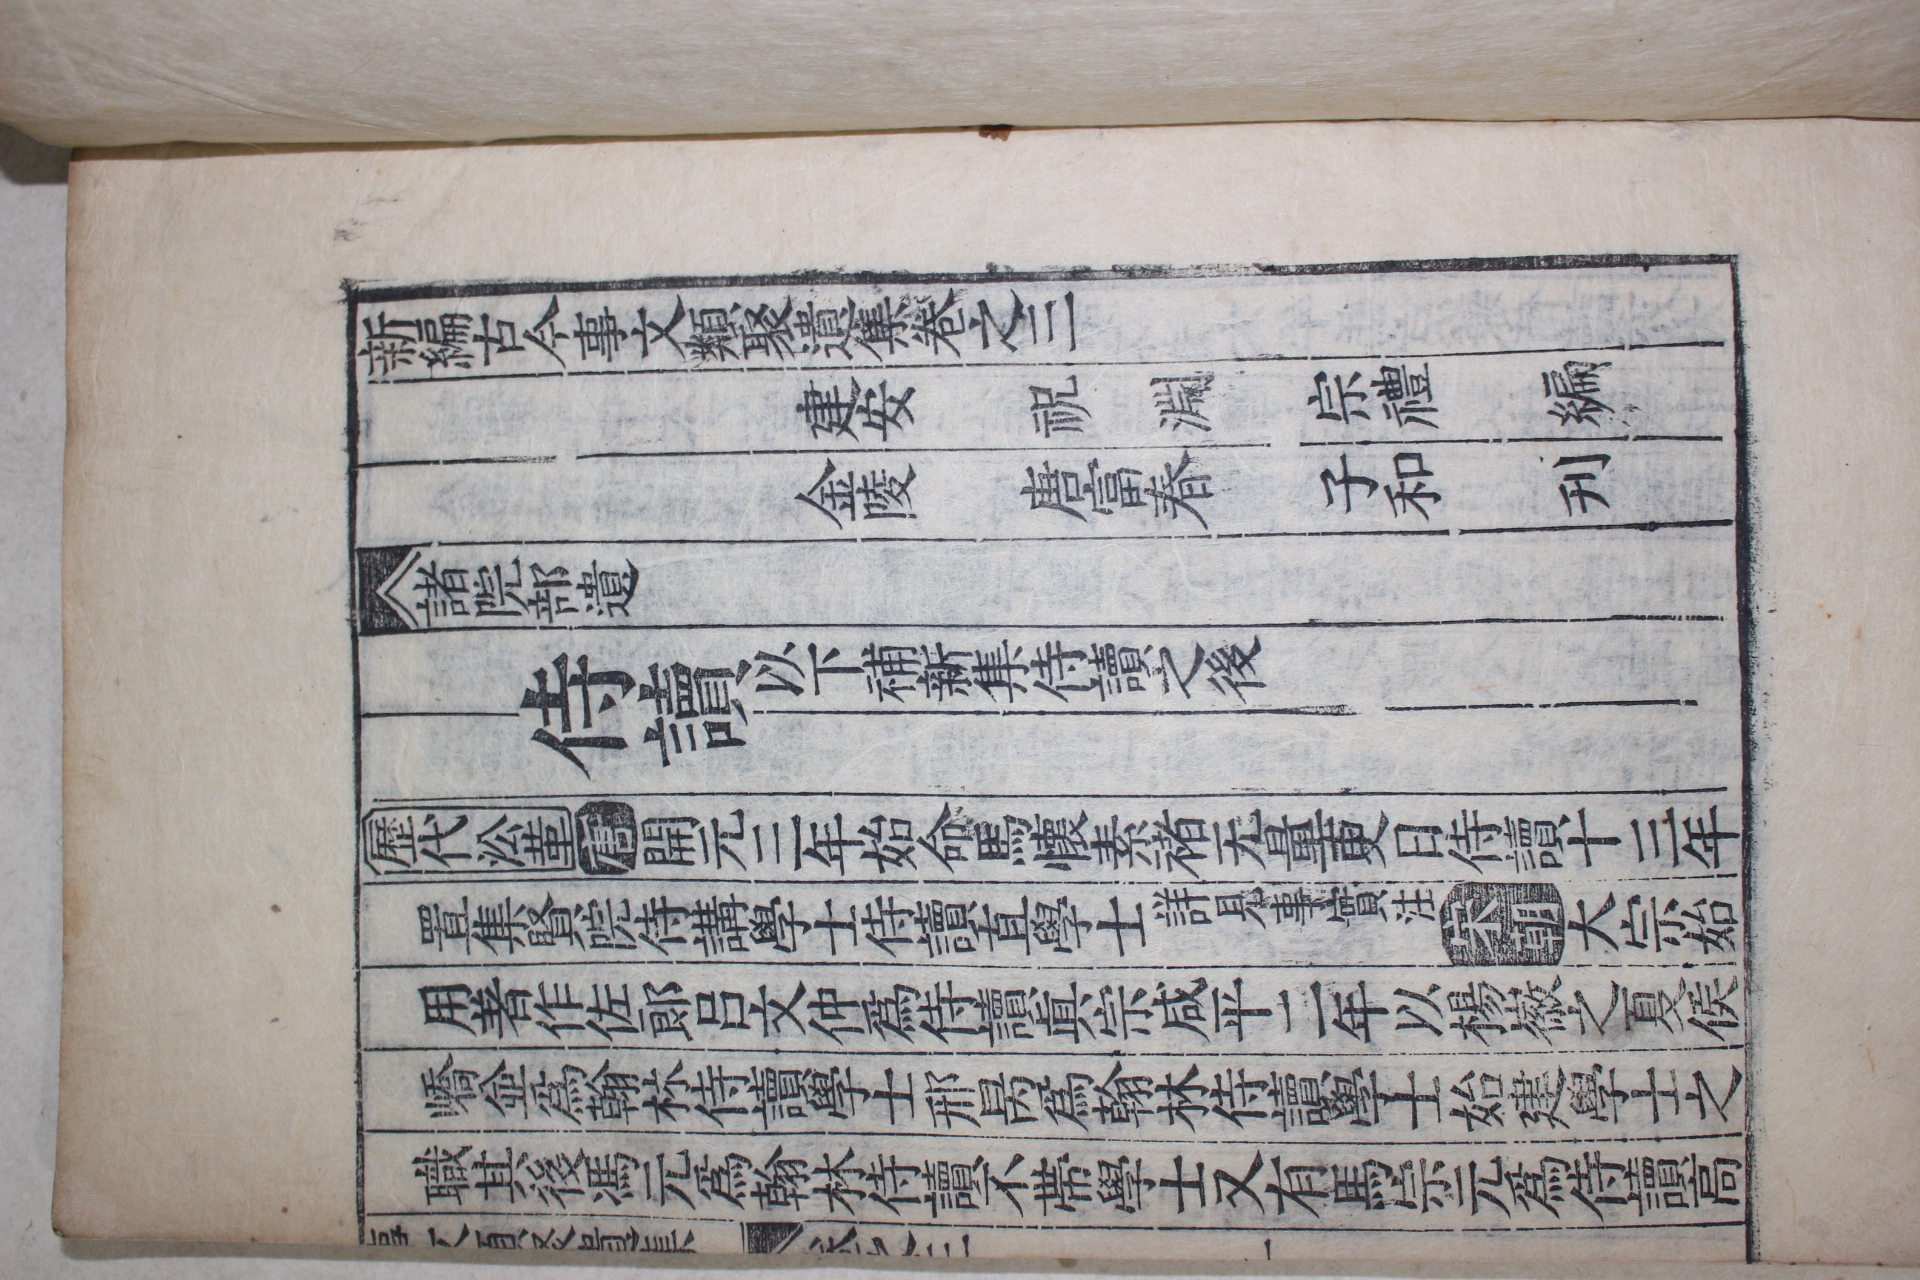 新編古今事文類聚遺集卷之三
建安 祝 淵 宗禮 編
金陵 唐富春 子和 刊
諸院部遺
侍讀以下補新集侍讀之後
歷代㳂革唐開元三年始命馬懷素褚无量更日侍讀十三年
置集賢院侍講學士侍讀直學士詳見事實注宋朝大宗始
用著作佐郎呂文仲爲侍讀眞宗咸平二年以楊徽之夏侯
嶠並爲翰林侍讀學士邢昺爲翰林侍讀學士始建學士之
職其後馮元爲翰林侍讀不帶學士又有馬宗元爲侍讀高
事文類聚遺集 卷之三 一